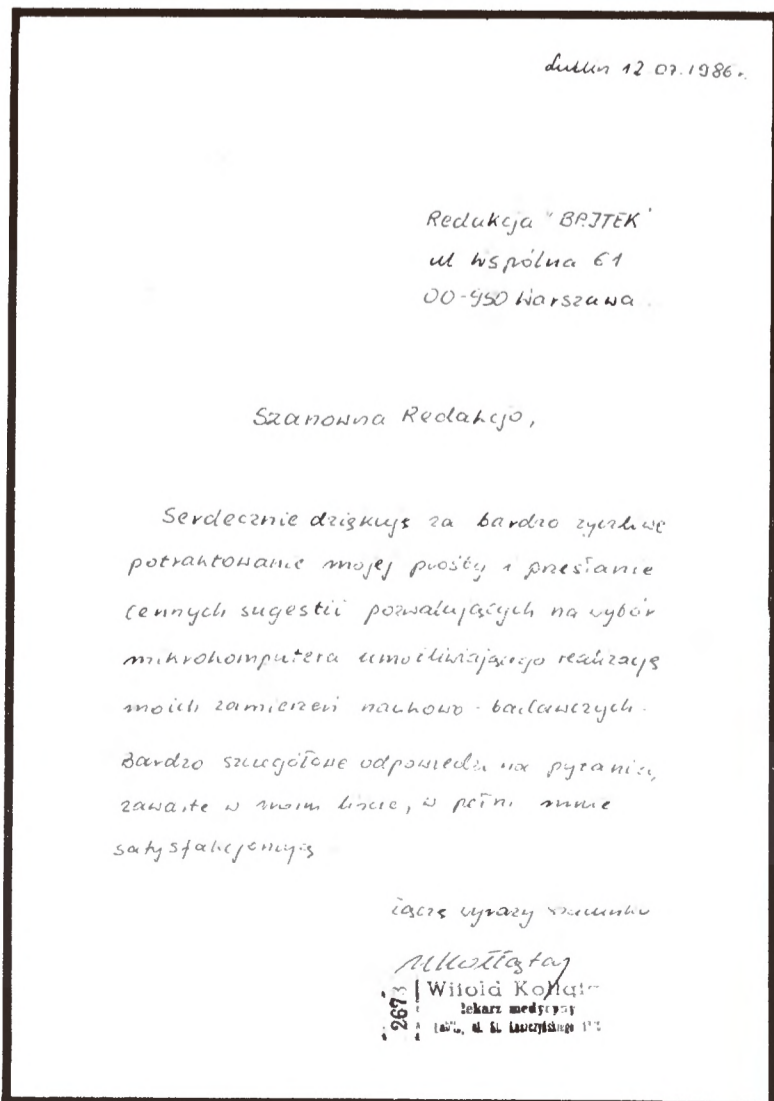 Lublin 12 07.1986r.
Redakcja "BAJTEK"
ul Wspólna 61
00-950 Warszawa
Szanowna Redakcjo,
Serdecznie dziękuję za bardzo życzliwe
potraktowanie mojej prośby i przesłanie
cennych sugestii pozwalających na wybór
mikrokomputera umożliwiającego realizację
moich zamierzeń naukowo-badawczych.
Bardzo szczegółowe odpowiedzi na pytania,
zawarte w moim liście, w pełni mnie
satysfakcjonują
Łączę wyrazy szacunku
WKołłątaj
Witold Kołłąt
lekarz medycyny
2673